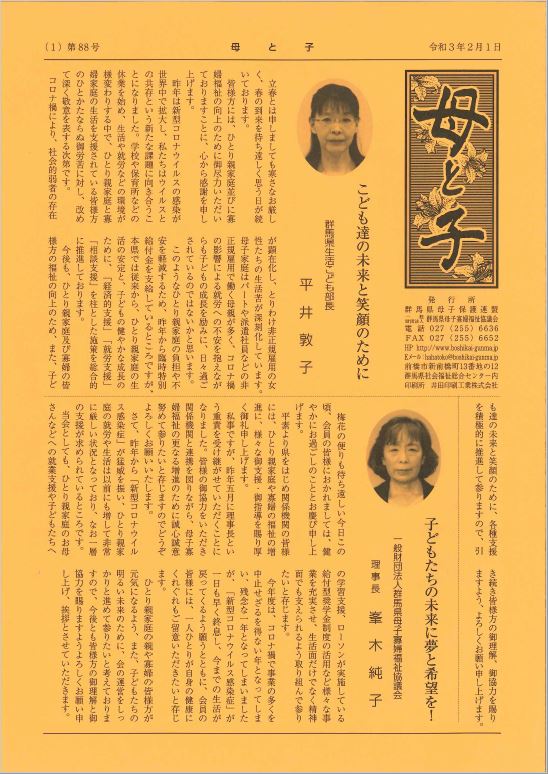 (1) 第88号
母と子
令和3年2月1日
母と子
発行所
群馬県母子保護連盟
群馬県母子寡婦福祉協議会
電話 027 (255) 6636
FAX 027 (255) 6652
HP http://www.boshikai-gunma.jp
Eメール hahatoko@boshikai-gunma.jp
前橋市新前橋町13番地の12
群馬県社会福祉総合センター内
印刷所 井田印刷工業株式会社
こども達の未来と笑顔のために
群馬県生活こども部長
平井敦子
立春とは申しましても寒さなお厳し
く、春の到来を待ち遠しく思う日が続
いております。
皆様方には、ひとり親家庭並びに寡
婦福祉の向上のために御尽力いただい
ておりますことに、心から感謝を申し
上げます。
昨年は新型コロナウイルスの感染が
世界中で拡大し、私たちはウイルスと
の共存という新たな課題に向き合うこ
とになりました。学校や保育所などの
休業を始め、生活や就労などの環境が
様変わりする中で、ひとり親家庭と寡
婦家庭の生活を支援されている皆様方
のひとかたならぬ御労苦に対し、改め
て深く敬意を表する次第です。
コロナ禍により、社会的弱者の存在
が顕在化し、とりわけ非正規雇用の女
性たちの生活苦が深刻化しています。
母子家庭はパートや派遣社員などの非
正規雇用で働く母親が多く、コロナ禍
の影響による就労への不安を抱えなが
らも子どもの成長を励みに、日々過ご
されているのではないかと思います。
このようなひとり親家庭の負担や不
安を軽減するため、昨年から臨時特別
給付金を支給しているところですが、
本県では従来から、ひとり親家庭の生
活の安定と、子どもの健やかな成長の
ために、「経済的支援」「就労支援」
「相談支援」を柱とした施策を総合的
に推進しております。
今後も、ひとり親家庭及び寡婦の皆
様方の福祉の向上のため、また、子ど
も達の未来と笑顔のために、各種支援
を積極的に推進して参りますので、引
き続き皆様方の御理解、御協力を賜り
ますよう、よろしくお願い申し上げます。
子どもたちの未来に夢と希望を!
一般財団法人群馬県母子寡婦福祉協議会
理事長 峯木純子
梅花の便りも待ち遠しい今日この
頃、会員の皆様におかれましては、健
やかにお過ごしのこととお慶び申し上
げます。
平素より県をはじめ関係機関の皆様
には、ひとり親家庭や寡婦の福祉の増
進に、様々な御支援・御指導を賜り厚
く御礼申し上げます。
私事ですが、昨年五月に理事長とい
う重責を受け継がせていただくことに
なりました。皆様の御協力をいただき
関係機関と連携を図りながら、母子寡
婦福祉の更なる増進のために誠心誠意
努めて参りたいと存じますのでどうぞ
よろしくお願いいたします。
さて、昨年から「新型コロナウイル
ス感染症」が猛威を振い、ひとり親家
庭の就労や生活は以前にも増して非常
に厳しい状況となっており、なお一層
の支援が求められているところです。
当会としても、ひとり親家庭のお母
さんなどへの就業支援や子どもたちへ
の学習支援、ローソンが実施している
給付型奨学金制度の活用など様々な事
業を充実させ、生活面だけでなく精神
面でも支えられるよう取り組んで参り
たいと存じます。
今年度は、コロナ禍で事業の多くを
中止せざるを得ない年となってしま
い、残念な一年となってしまいました
が、「新型コロナウイルス感染症」が
一日も早く終息し、今までの生活が
戻ってくるよう願うとともに、会員の
皆様には、一人ひとりが自身の健康に
くれぐれもご留意いただきたいと存じ
ます。
ひとり親家庭の親や寡婦の皆様方が
元気になるよう、また、子どもたちの
明るい未来のために、会の運営をしっ
かりと進めて参りたいと考えておりま
すので、今後とも皆様方の御理解と御
協力を賜りますようよろしくお願い申
し上げ、挨拶とさせていただきます。